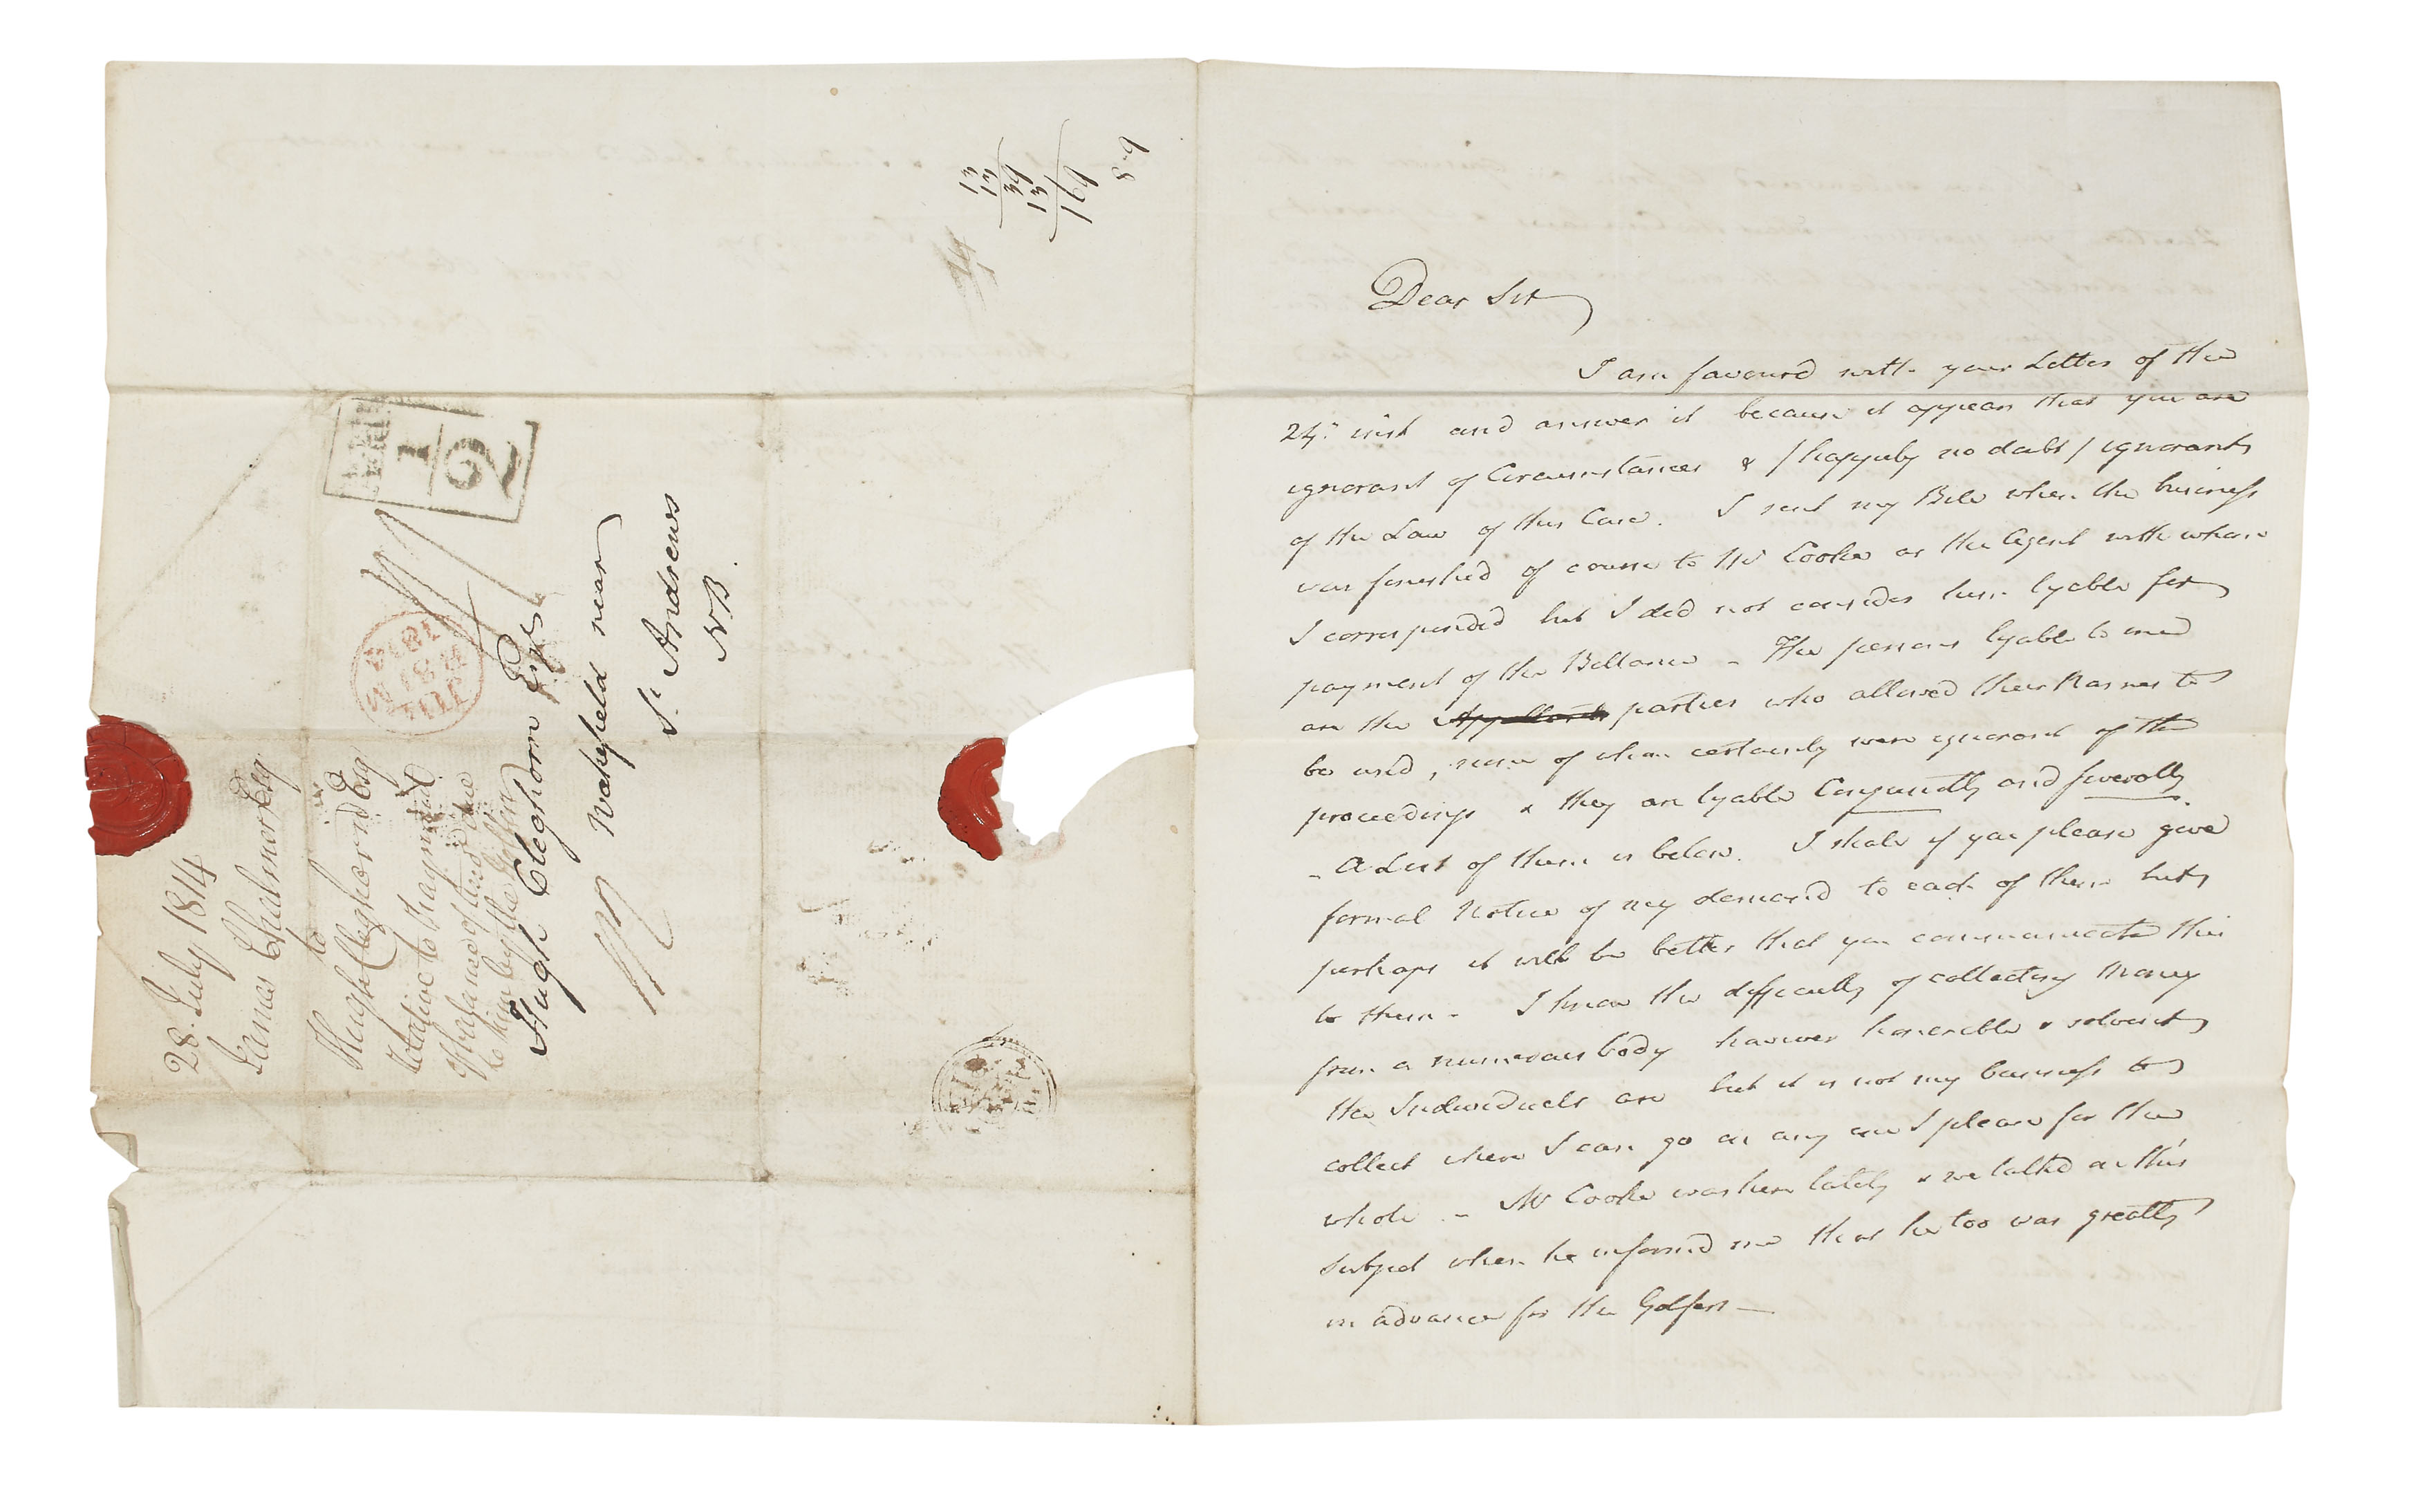 Dear Sir
I am favoured with your Letter of the
24th inst and answer it because it appears that you are
ignorant of Circumstances & / happily no doubt / ignorant
of the Law of this Case. I sent my Bill when the business
was finished of course to Mr Cooke as the Agent with whom
I corresponded but I did not consider him lyable for
payment of the Ballance - The persons lyable to me
are the Appellants parties who allowed their Names to
be used, none of whom certainly were ignorant of the
proceedings & they are lyable Conjunctly and severally.
- A List of them is below. I shall if you please give
formal Notice of my demand to each of them but
perhaps it will be better that you communicate this
to them - I know the difficulty of collecting money
from a numerous body however honorable & solvent
the Individuals are but it is not my business to
collect when I can go on any one I please for the
whole - Mr Cooke was here lately & we talked on this
subject when he informed me that he too was greatly
in advance for the Golfers -
28. July 1814
James Chalmer Esq
to
Hugh Cleghorn Esq
relative to Payment
of balance of due
to him by the Golfers
Hugh Cleghorn Esqr
Wakefield near
St Andrews
N.B.
1/2
JUL
28
1814